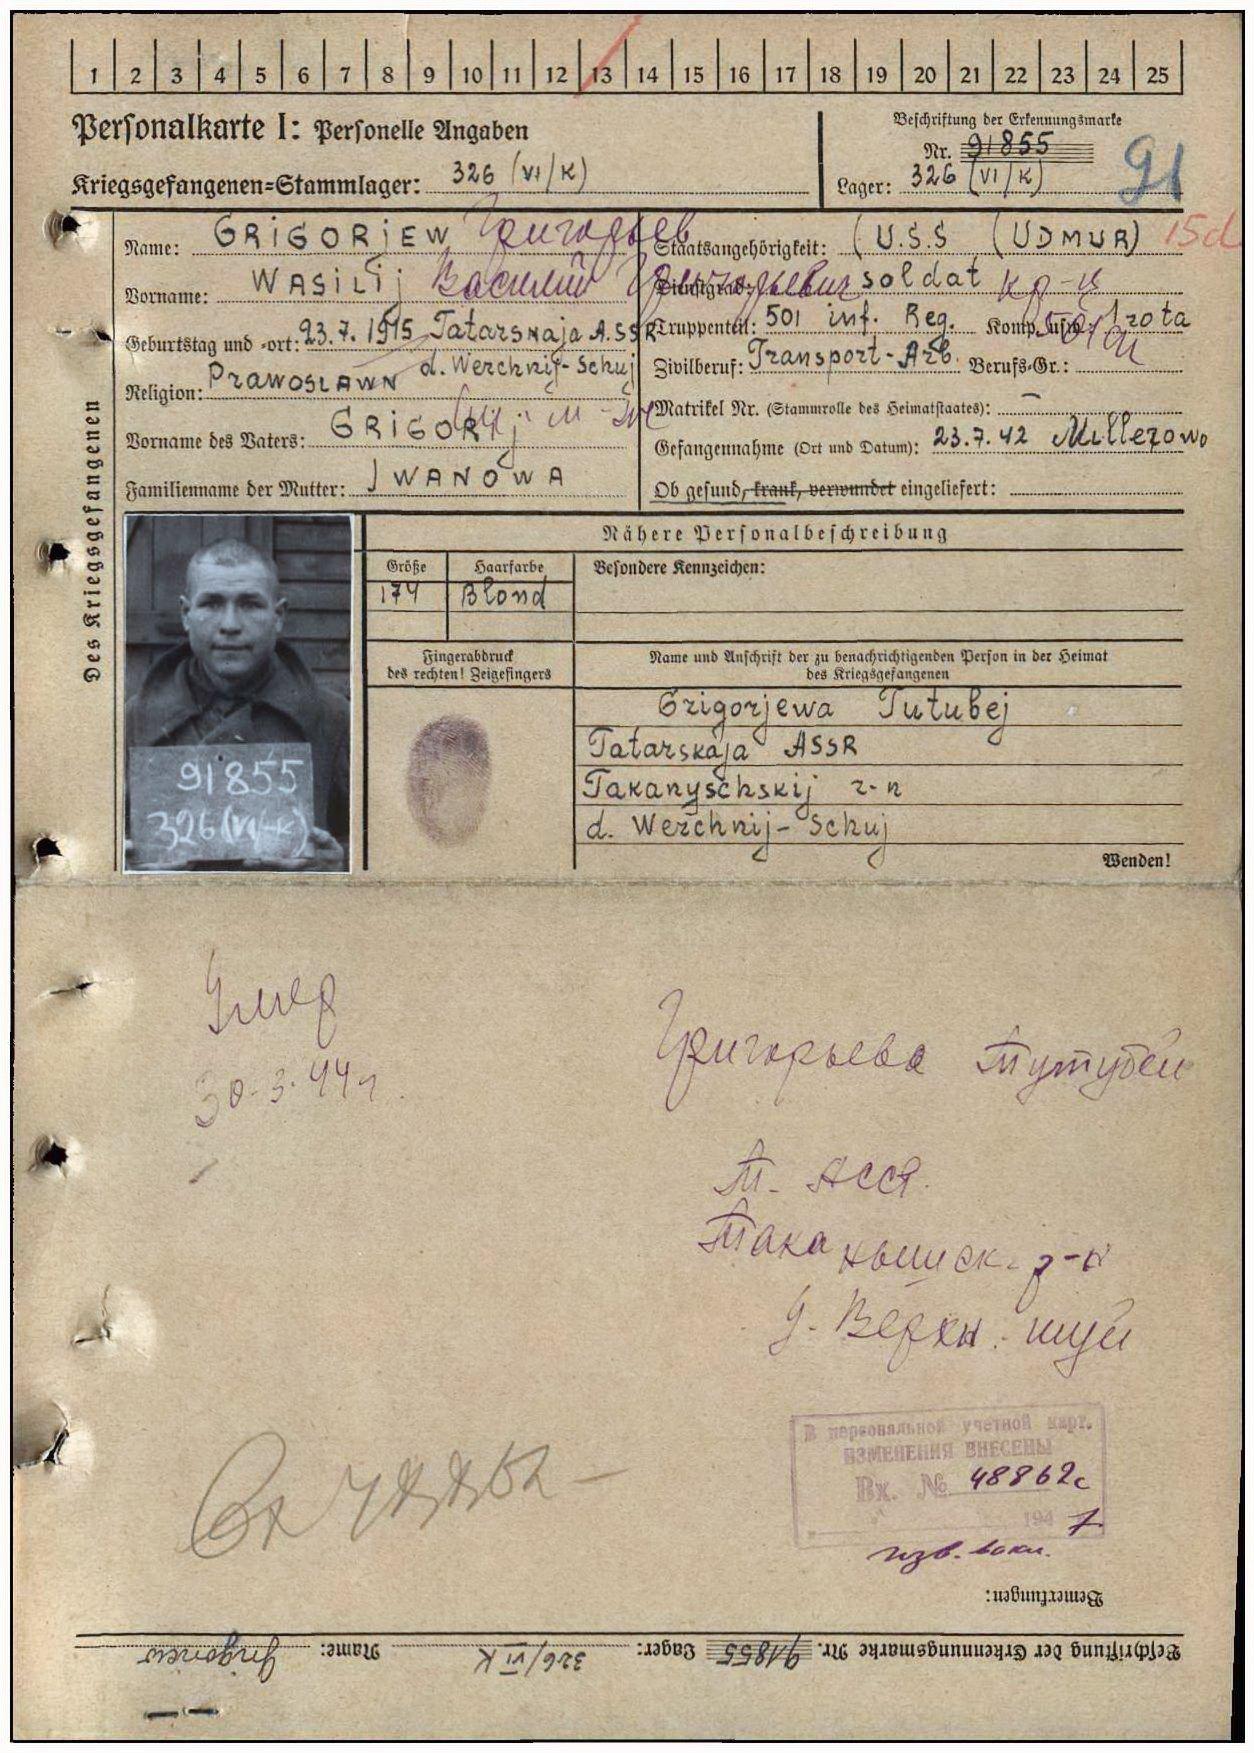 1 2 3 4 5 6 7 8 9 10 11 12 13 14 15 16 17 18 19 20 21 22 23 24 25
Personalkarte I: Personelle Angaben
Kriegsgefangenen=Stammlager: 326 (VI/K)
Beschriftung der Erkennungsmarke
Nr. 91855
Lager: 326 (VI/K)
91
Des Kriegsgefangenen
Name: GRiGORjEW Григорьев
Vorname: WASiLij Василий Григорьевич
Geburtstag und -ort: 23.7.1915 Tatarskaja A.SSR
d. Werchnij-Schuj
Religion: PrawosLAWN
Vorname des Vaters: GRiGORij
Familienname der Mutter: IWANOWA
Staatsangehörigkeit: (U.S.S (UDMUR) 15d
Dienstgrad: soldat кр-ц
Truppenteil: 501 inf. Reg. Komp. usw.: 1 rota
Zivilberuf: Transport-Arb. Berufs-Gr.:
Matrikel Nr. (Stammrolle des Heimatstaates): –
Gefangennahme (Ort und Datum): 23.7.42 Millerowo
Ob gesund, krank, verwundet eingeliefert:
Nähere Personalbeschreibung
Größe Haarfarbe Besondere Kennzeichen:
174 Blond
Fingerabdruck
des rechten! Zeigefingers
Name und Anschrift der zu benachrichtigenden Person in der Heimat
des Kriegsgefangenen
Grigorjewa Tutubej
Tatarskaja ASSR
Takanyschskij r-n
d. Werchnij-Schuj
91855
326(VI-K)
Wenden!
Умер
30-3-44г.
Григорьева Тутубей
Т. АССР.
Таканышск. р-н
д. Верхн. шуй
В персональной учетной карт.
ИЗМЕНЕНИЯ ВНЕСЕНЫ
Вх. № 48862с
1947
Bemerkungen:
Beschriftung der Erkennungsmarke Nr. 91855 Lager: 326/VI K Name: Grigoriew